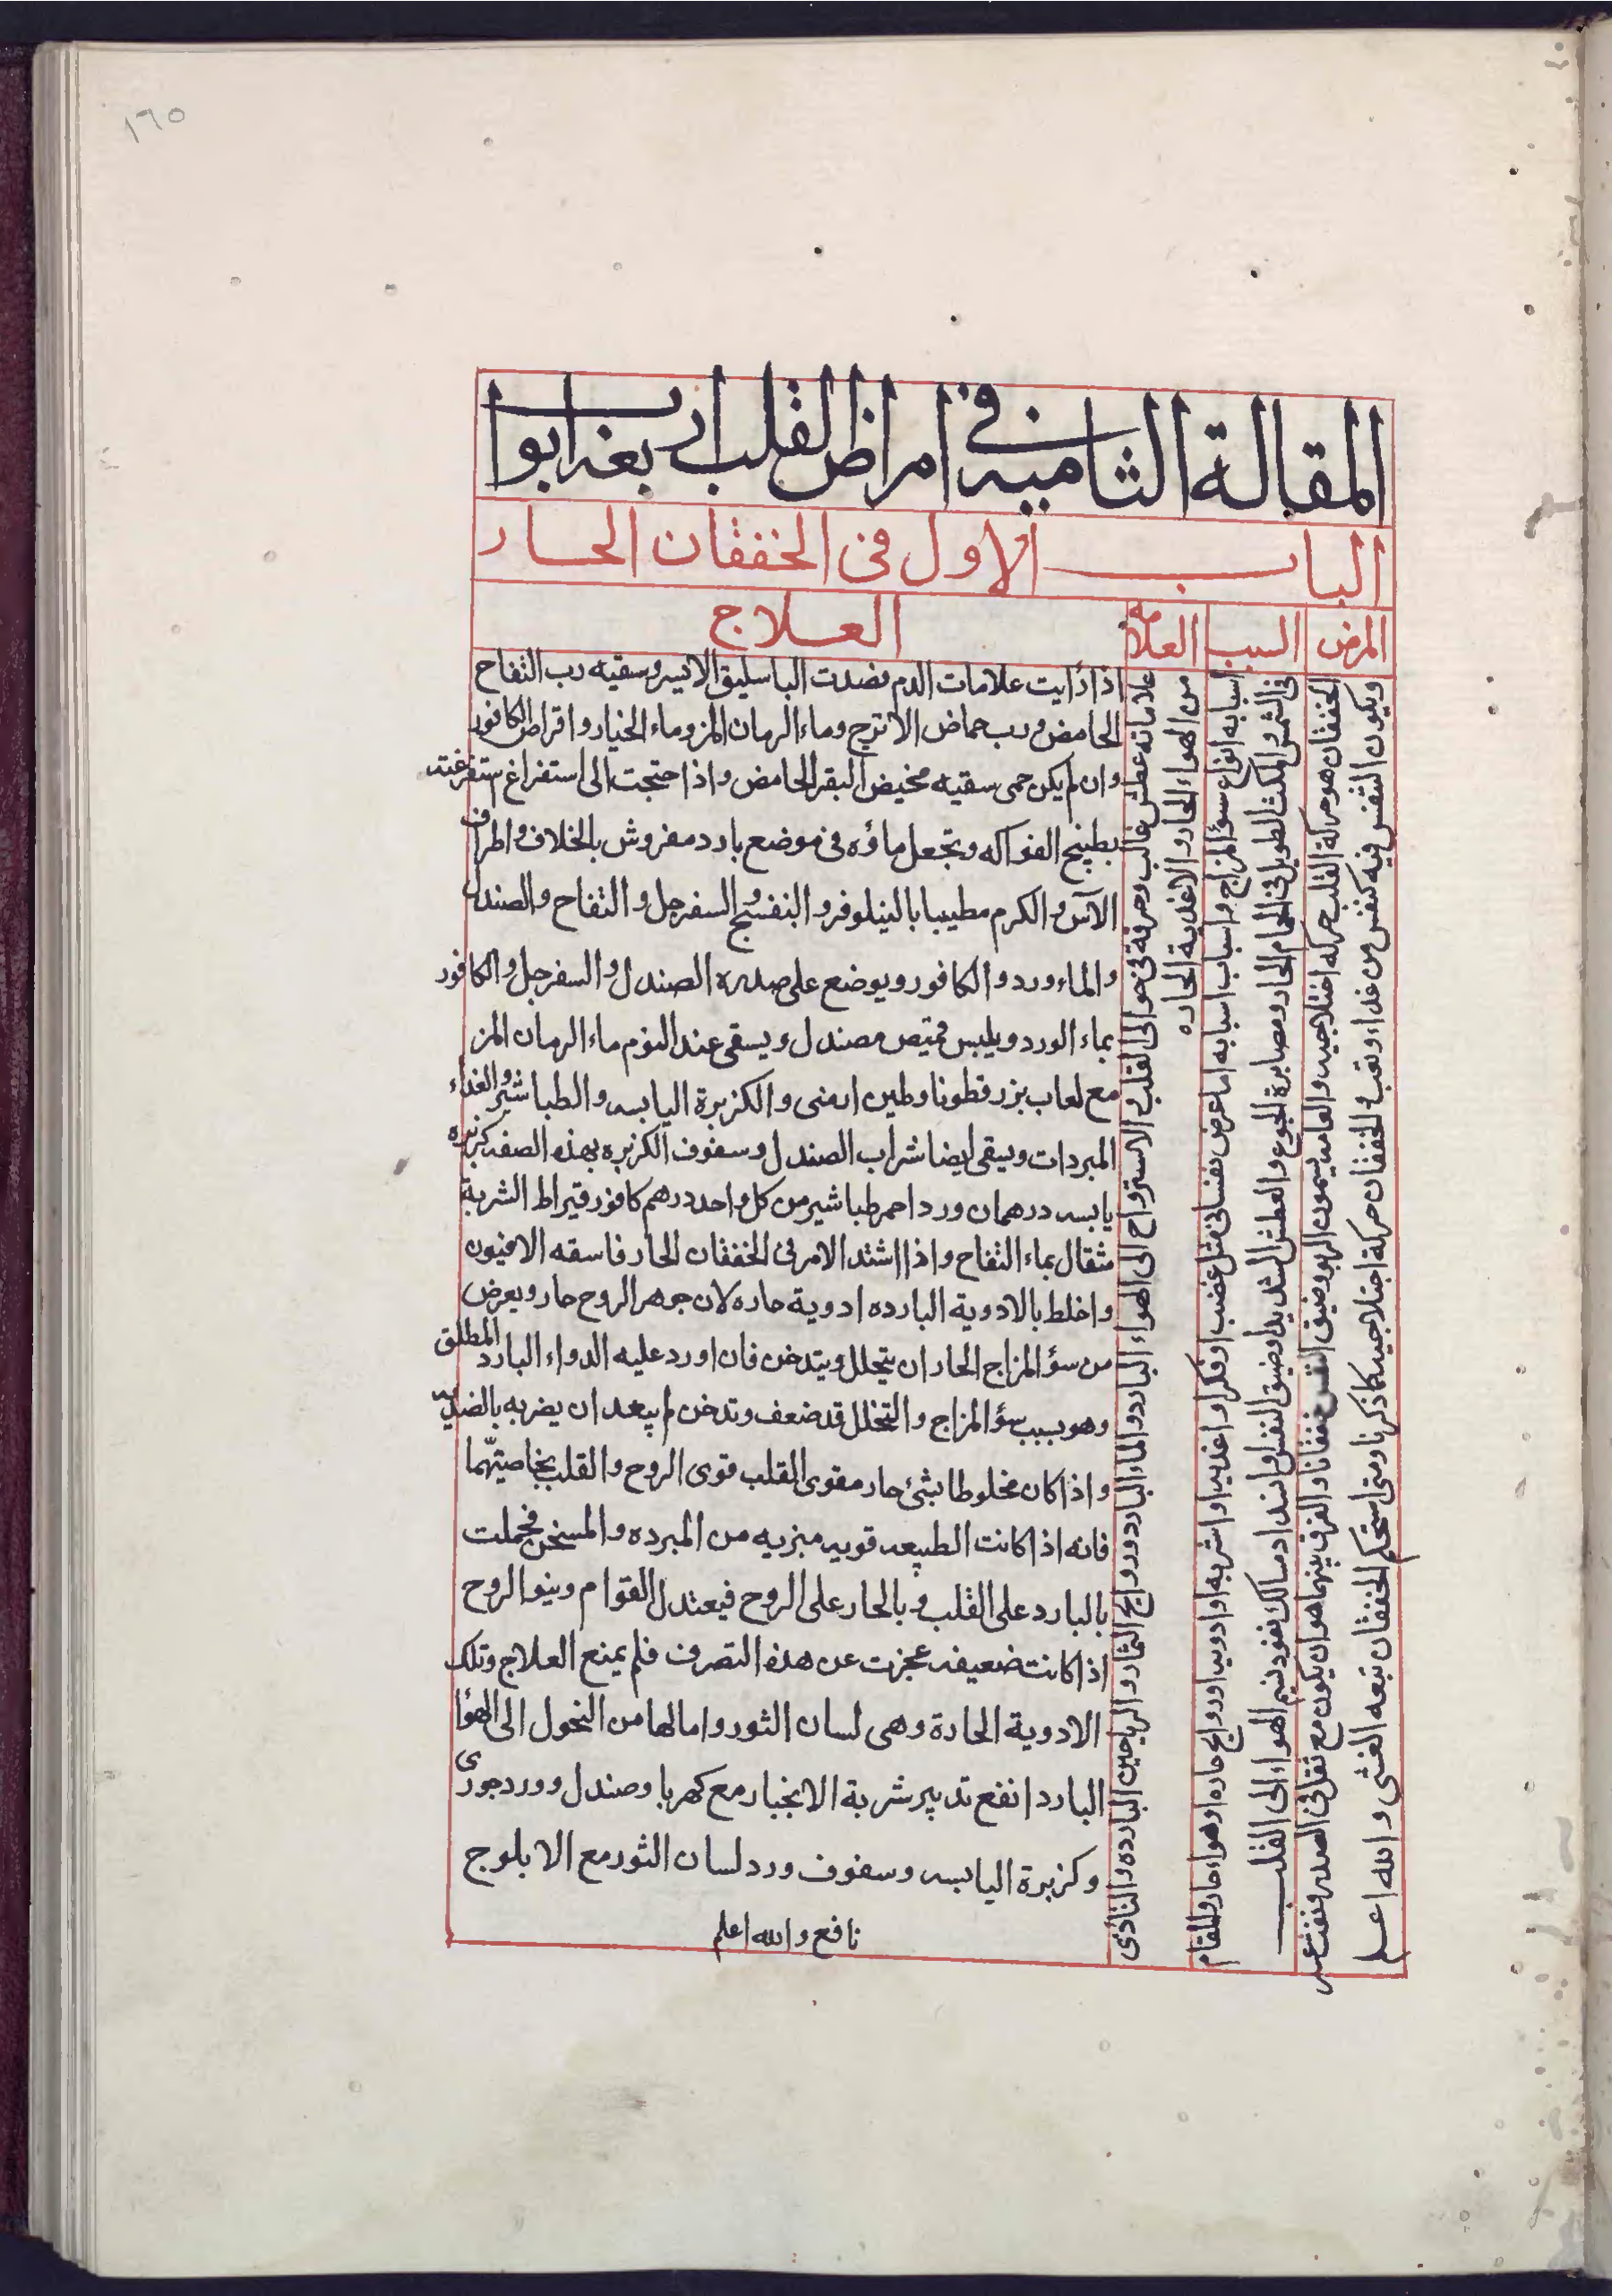 ١٦٥
المقالة الثامنه في امراض القلب اربعه ابواب
الباب الاول فى الخفقان الحار
المرض
السبب
العلامه
العلاج
الخفقان هو حركة القلب حركه اختلاجيه والعامه يسمون الربو وضيق النفس خفقانا والفرق بينهما هو ان يكون مع ثقل فى الصدر ونفث
ويكون النفس فيه كنفس من غذاء وتعب والخفقان حركة اختلاجيه كما ذكرنا ومتى استحكم الخفقان تبعه الغشى والله اعلم
اسبابه انواع سؤ المزاج واسباب اسبابه اما عرض نفسانى مثل غضب او فكر او اغذيه او اشربه او ادويه او روايح حاره او هواء حار والمقام
فى الشمس والمكث الطويل فى الحمام الحار ومصابرة الجوع والعطش الشديد وضيق النفس وانسداد مسالك نفود نسيم الهواء الى القلب
علاماته عطش غالب وحرقة فى حوالى القلب والاسترواح الى الهواء البارد والماء البارد وروايح الثمار والرياحين البارده والتاذى
من الهواء الحار والاغذية الحاره
اذا رأيت علامات الدم فصدت الباسليق الايسر وسقيه رب التفاح
الحامض ورب حماض الاترج وماء الرمان المز وماء الخيار واقراص الكافور
وان لم يكن حمى سقيه مخيض البقر الحامض واذا حتجت الى استفراغ ستفرغته
بطبيخ الفواكه وتجعل ماؤه فى موضع بارد مفروش بالخلاف واطراف
الآس والكرم مطيبا بالنيلوفر والبنفسج والسفرجل والتفاح والصندل
والماء ورد والكافور ويوضع على صدره الصندل والسفرجل والكافور
بماء الورد ويلبس قميص مصندل ويسقى عند النوم ماء الرمان المز
مع لعاب بزر قطونا وطين ارمنى والكزبرة اليابسه والطباشير والغذاء
المبردات ويسقى ايضا شراب الصندل وسفوف الكزبره بهذه الصفه كزبره
يابسه درهمان ورد احمر طباشير من كل واحد درهم كافور قيراط الشربة
مثقال بماء التفاح واذا اشتد الامر فى الخفقان الحار فاسقه الافيون
واخلط بالادوية البارده ادوية حاره لان جوهر الروح حار ويعرض
من سؤ المزاج الحار ان يتحلل ويتدخن فان اورد عليه الدواء البارد المطلق
وهو بسبب سؤ المزاج والتخلل قد ضعف وتدخن لم يبعد ان يضربه بالضديه
واذا كان مخلوطا بشئ حار مقوى القلب قوى الروح والقلب بخاصيتهما
فانه اذا كانت الطبيعه قويه ميزيه من المبرده والمسخن فحملت
بالبارد على القلب وبالحار على الروح فيعتدل القوام وينو الروح
اذ كانت ضعيفه عجزت عن هذه التصرف فلم يمنع العلاج وتلك
الادوية الحارة وهى لسان الثور وامالها من التحول الى الهوا
البارد انفع تدبير شربة الانجبار مع كهربا وصندل وورد جورى
وكزبرة اليابسه وسفوف ورد لسان الثور مع الابلوج
نافع والله اعلم